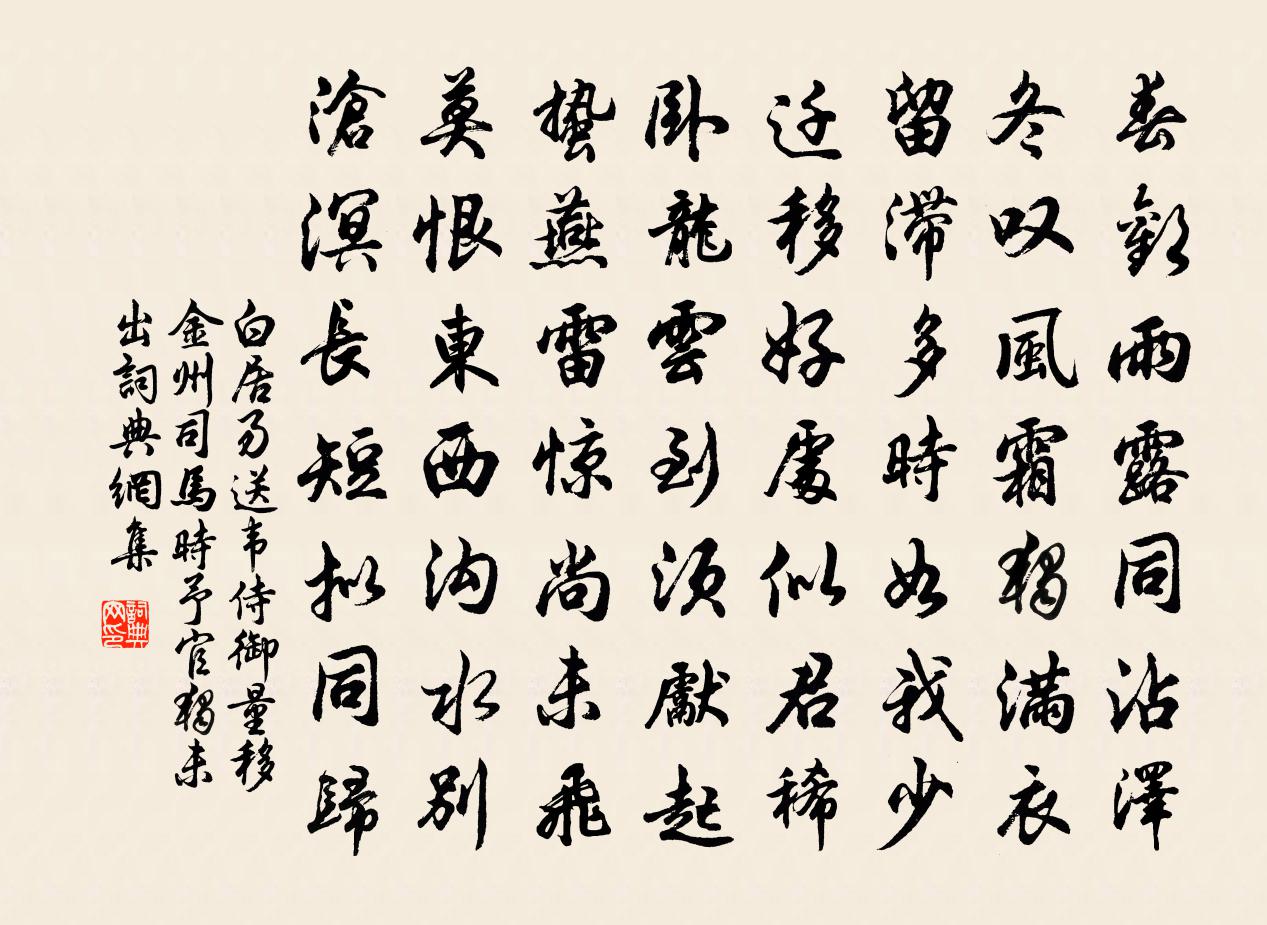 春歡雨露同沾澤
冬叹風霜獨满衣
留滞多時如我少
迁移好處似君稀
卧龍雲到須獻起
蛰燕雷惊尚未飛
莫恨東西沟水别
滄溟長短拟同歸
白居易送韦侍御量移
金州司馬時予官獨未
出詞典網集
詞典网印